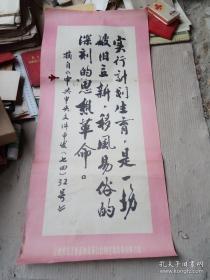 实行计划生育，是一场
破旧立新、移风易俗的
深刻的思想革命。
摘自《中共中央文件中发（七四）32号》